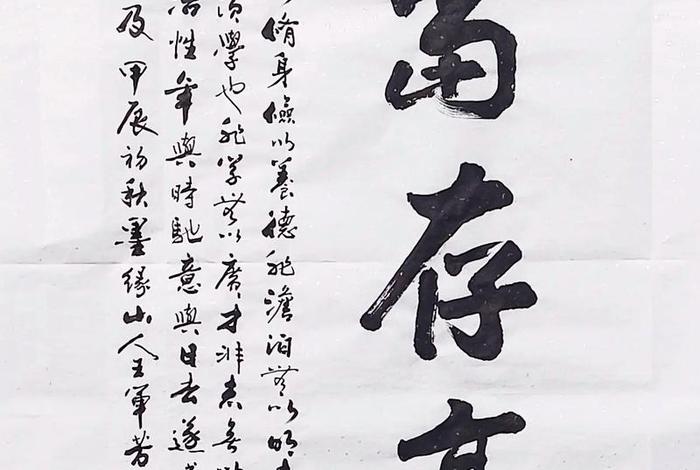 當存高
脩身儉以養德非澹泊無以明
須學也非學無以廣才非志無以
冶性年與時馳意與日去遂
及甲辰初秋墨緣山人王軍書